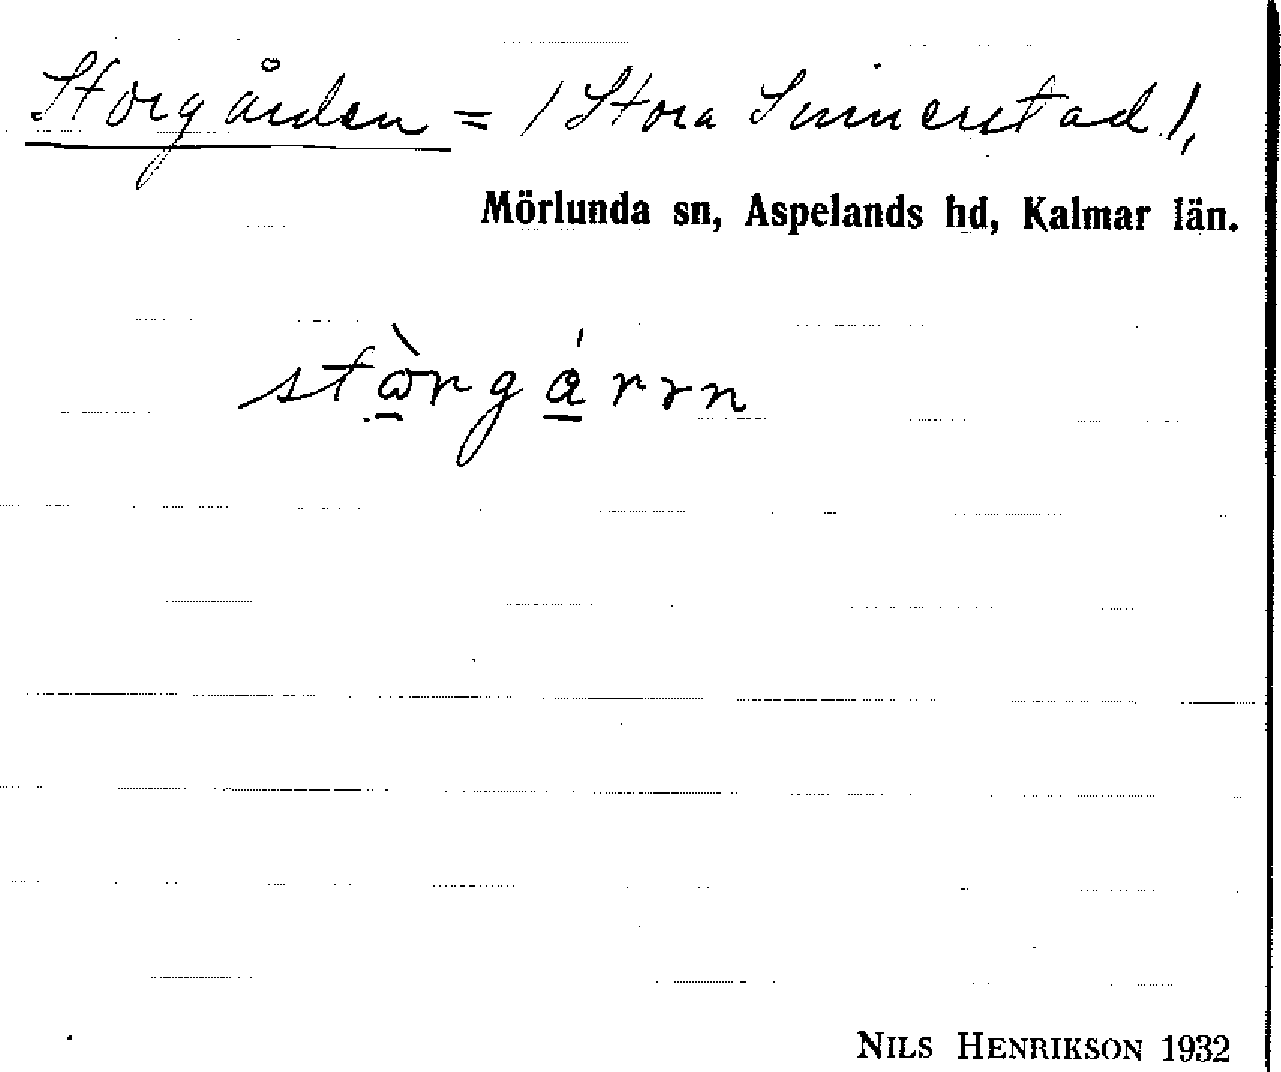 Storgården = /Stora Sinnerstad/,
Mörlunda sn, Aspelands hd, Kalmar län.
stꞷ̠̀rgá̠rrn
NILS HENRIKSON 1932